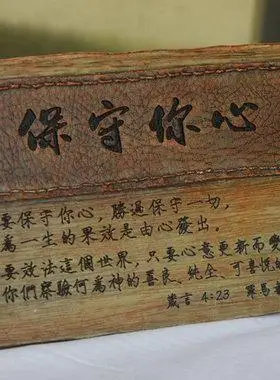 保守你心
要保守你心，勝過保守一切，
為一生的果效是由心發出。
要效法這個世界，只要心意更新而變
你們察驗何為神的善良、純全、可喜悅的
箴言 4:23 羅馬書